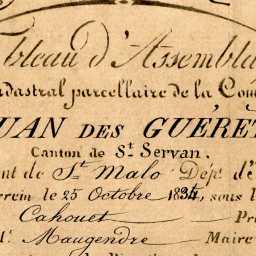 Tableau d'Assembla
adastral parcellaire de la Com
UAN DES GUÉRET
Canton de St. Servan.
nt de St Malo Dépt. d'I
rrein le 25 Octobre 1834, sous l
Cahouet Pr
M. Maugendre Maire